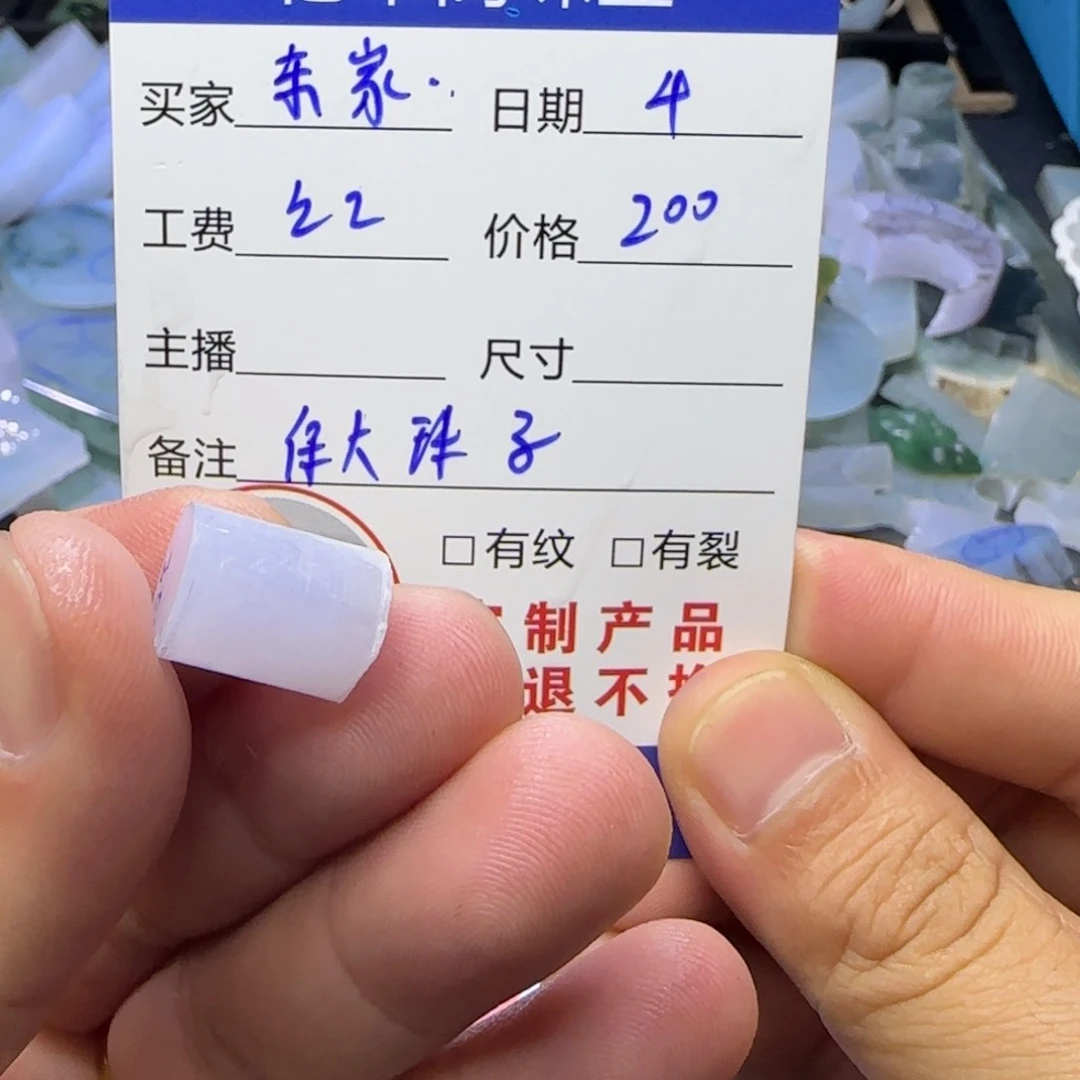 买家 东家 日期 4
工费 包工 价格 200
主播 尺寸
备注 保大珠子
□有纹 □有裂
制产品
退不换